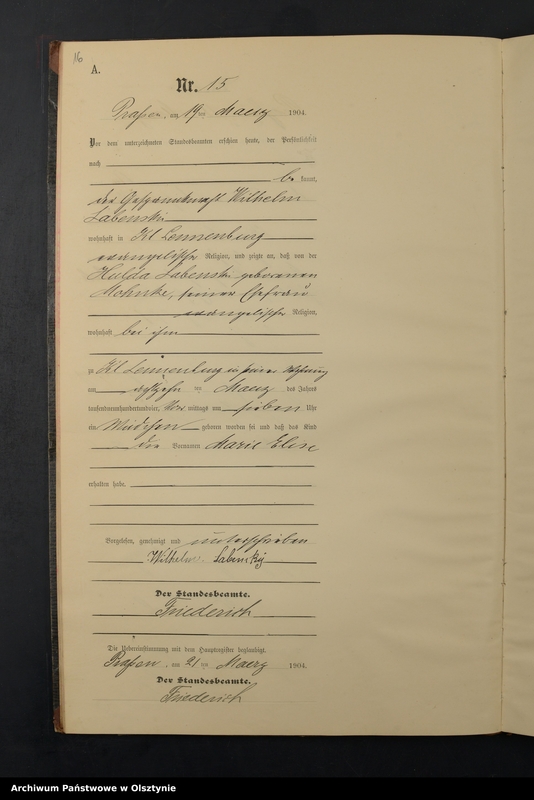 16
A.
Nr. 15
Praßen, am 19 ten Maerz 1904.
Vor dem unterzeichneten Standesbeamten erschien heute, der Persönlichkeit
nach
be kannt,
der Wilhelm
Labenski
wohnhaft in Kl Lennenburg
evangelischer Religion, und zeigte an, daß von der
Hulda Labenski geborenen
Mohnke, seiner Ehefrau
evangelischer Religion,
wohnhaft bei ihm
zu Kl Lennenburg in seiner Wohnung
am achtzehn ten Maerz des Jahres
tausendneunhundertundvier, Vor mittags um sieben Uhr
ein Mädchen geboren worden sei und daß das Kind
die Vornamen Marie Else
erhalten habe.
Vorgelesen, genehmigt und unterschrieben
Wilhelm Labinsky
Der Standesbeamte.
Friederich
Die Uebereinstimmung mit dem Hauptregister beglaubigt.
Praßen, am 21 ten Maerz 1904.
Der Standesbeamte.
Friederich
Archiwum Państwowe w Olsztynie